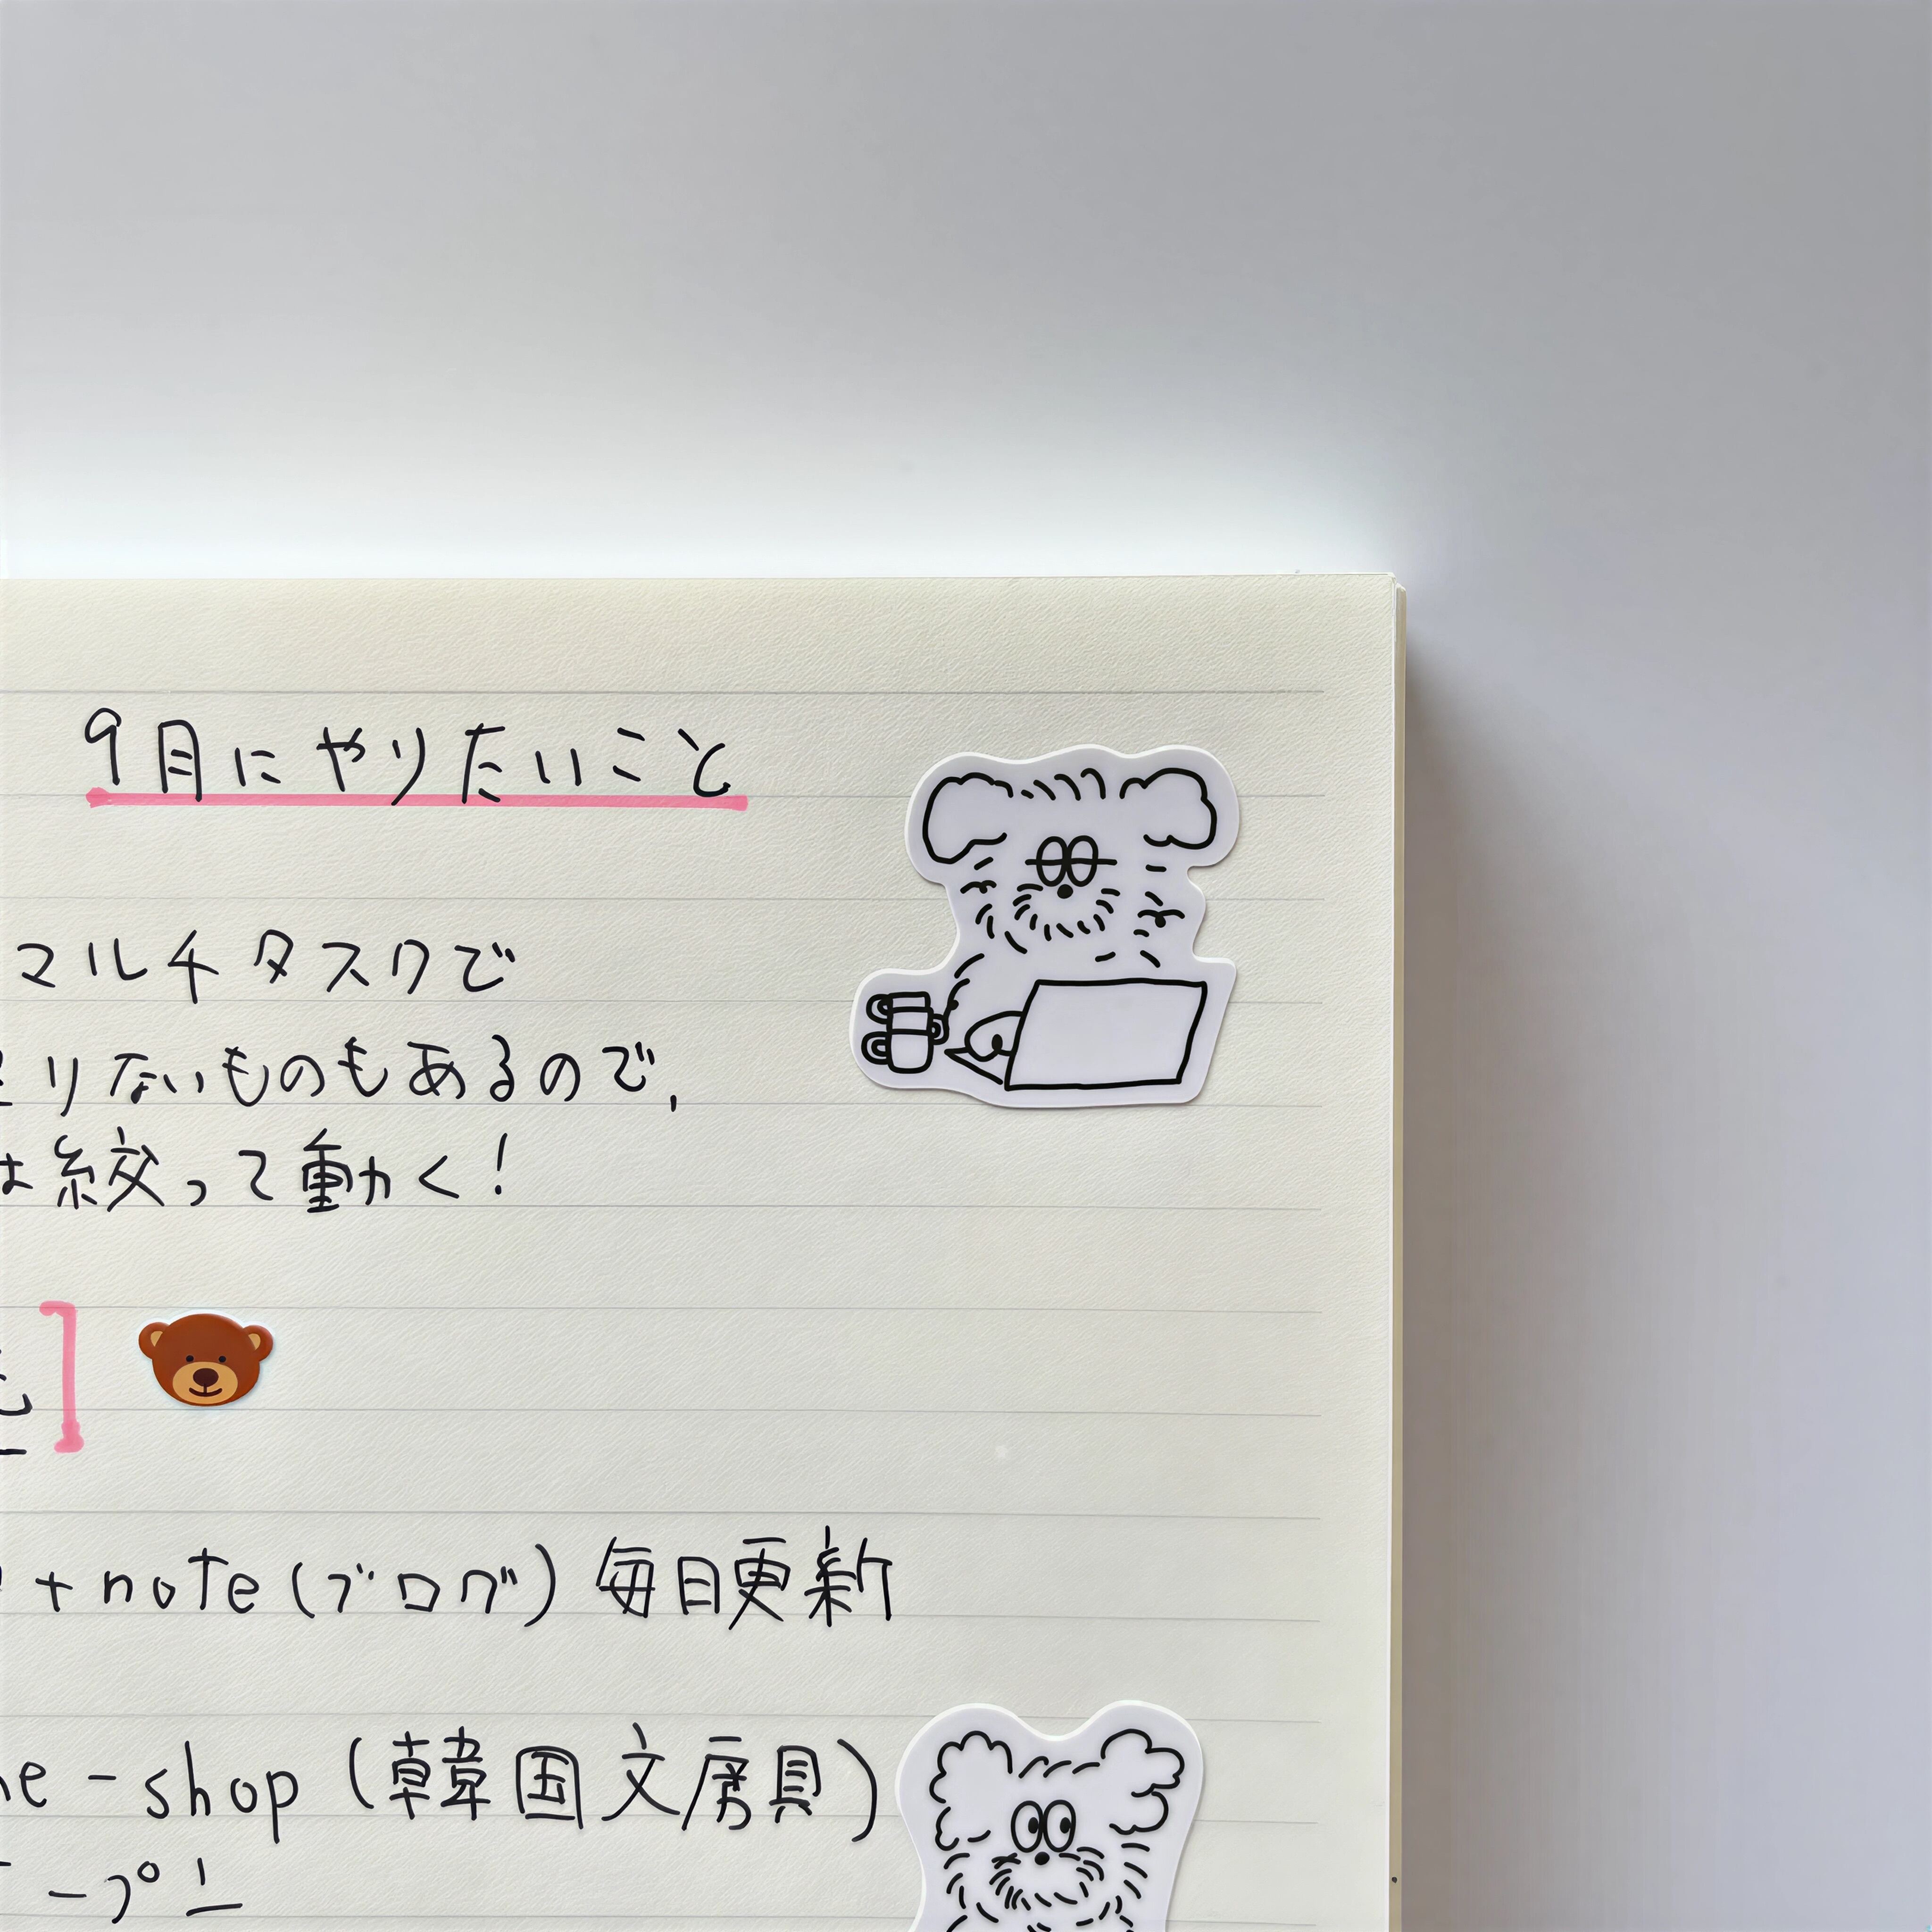 9月にやりたいこと
マルチタスクで
りないものもあるので,
絞って動く!
+ note (ブログ) 毎日更新
-shop (韓国文房具)